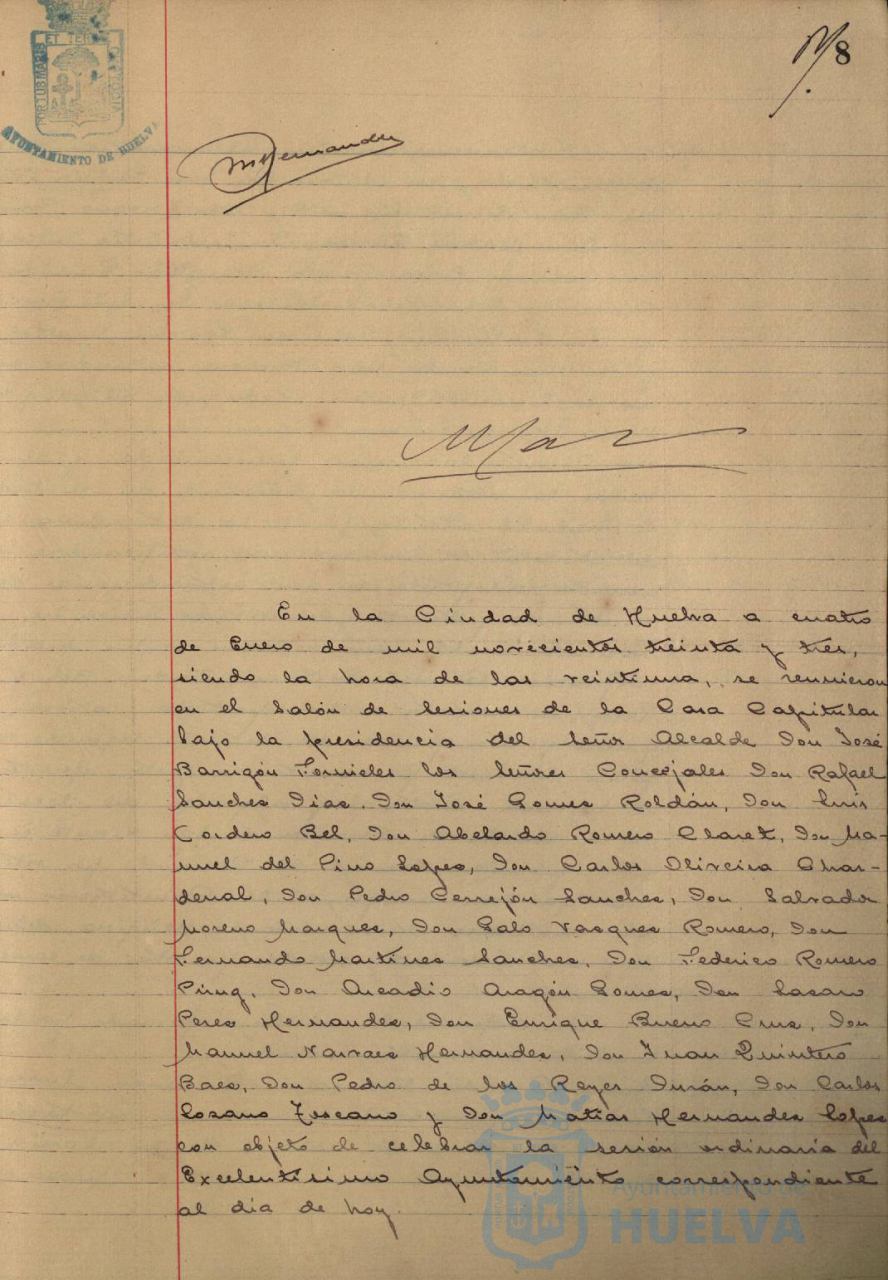 PORTUS MARIS ET TERRAE CUSTODIA
AYUNTAMIENTO DE HUELVA
8
MHernandez
En la Ciudad de Huelva a cuatro
de Enero de mil novecientos treinta y tres,
siendo la hora de las veintiuna, se reunieron
en el Salón de Sesiones de la Casa Capitular
bajo la presidencia del Señor Alcalde Don José
Barrigón Fornieles los Señores Concejales Don Rafael
Sanches Dias, Don José Gomes Roldán, Don Luis
Cordero Bel, Don Abelardo Romero Claret, Don Ma-
nuel del Pino Lopes, Don Carlos Oliveira Char-
denal, Don Pedro Cerrejón Sanches, Don Salvador
Moreno Marques, Don Galo Vasques Romero, Don
Fernando Martines Sanches, Don Federico Romero
Don Arcadio Aragón Gomes, Don Lasaro
Peres Hernandes, Don Enrique Bueno Crus, Don
Manuel Narvaes Hernandes, Don Juan Quintero
Baes, Don Pedro de los Reyes Durán, Don Carlos
Losano Toscano y Don Matías Hernandes Lopes
con objeto de celebrar la sesión ordinaria del
Excelentisimo Ayuntamiento correspondiente
al día de hoy.
Ayuntamiento de
HUELVA